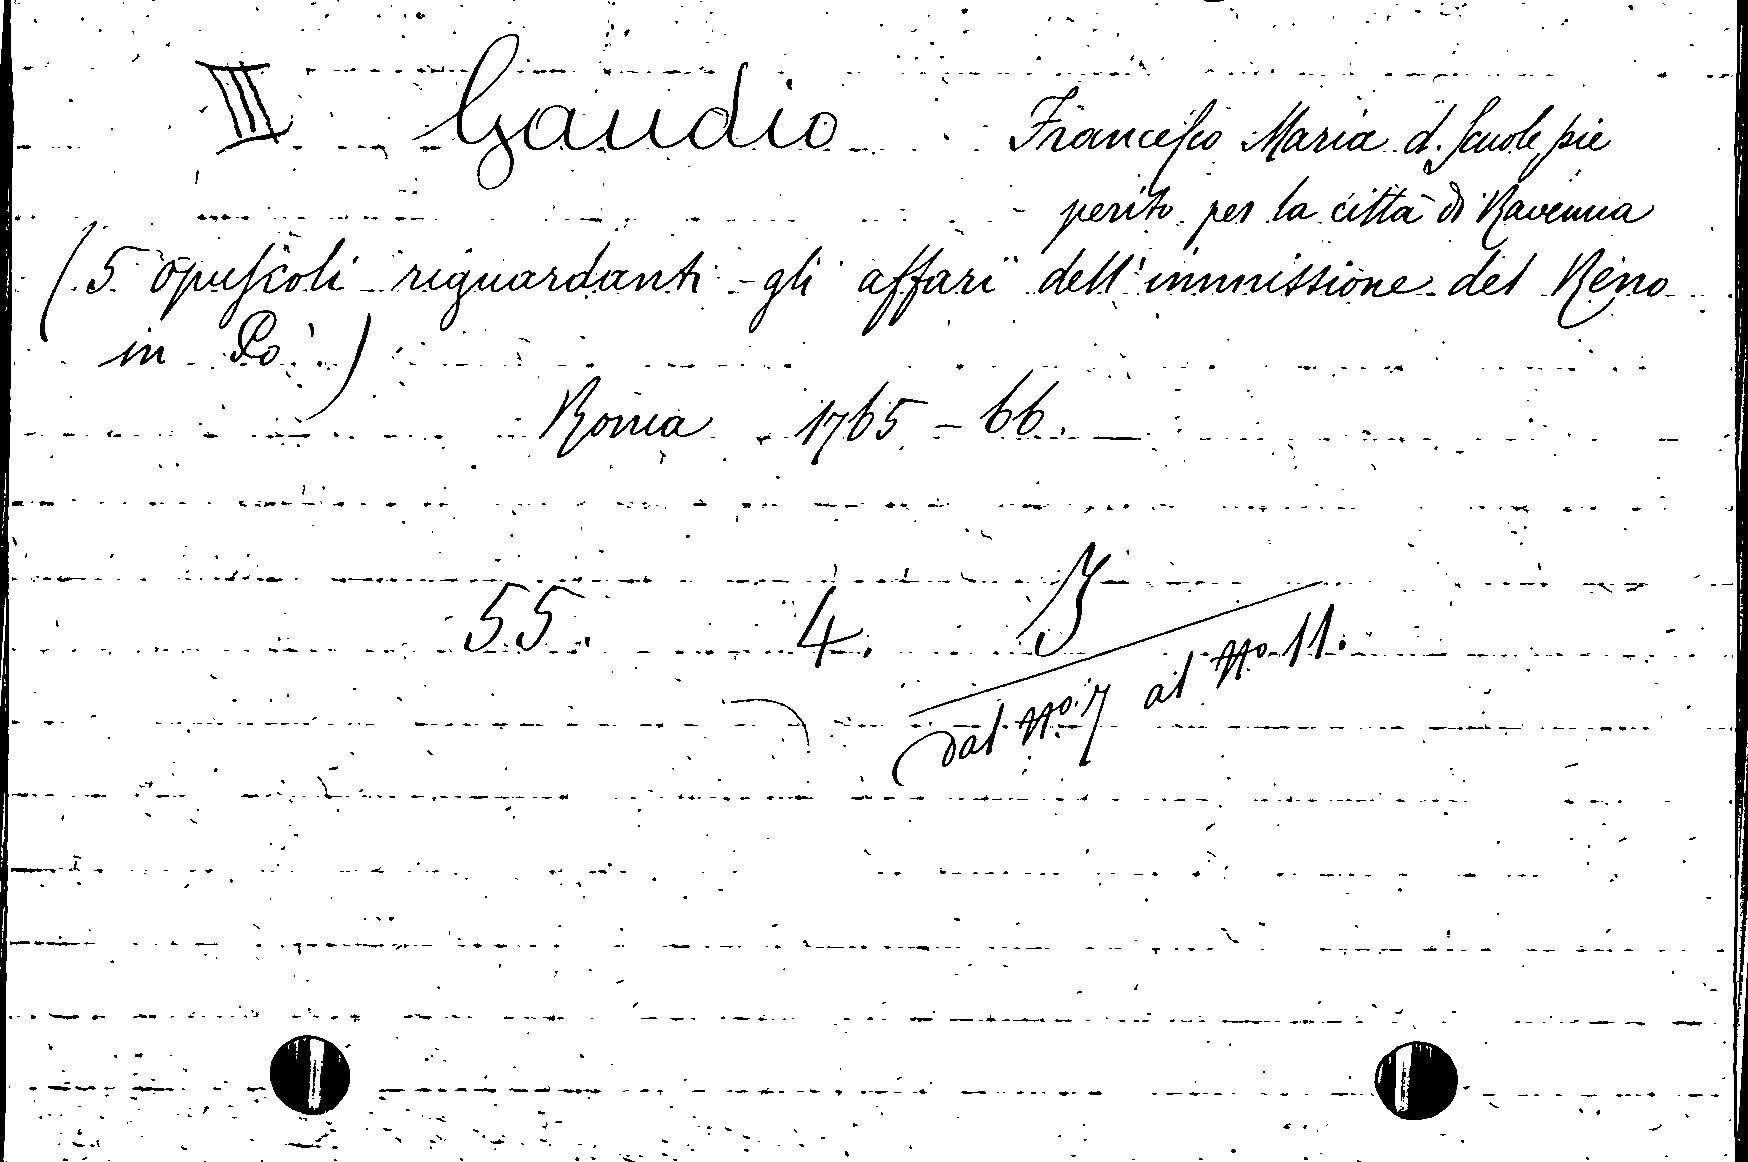 III Gaudio Francesco Maria d. Scuole pie
perito per la città di Ravenna
(5 opuscoli riguardanti gli affari dell'immissione del Reno
in Pò)
Roma 1765-66.
55. 4. I
dal Nº. 7 al Nº. 11.